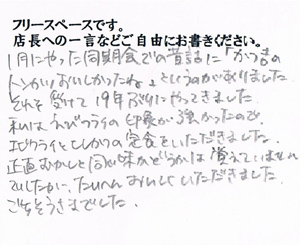 フリースペースです。
店長への一言などご自由にお書きください。
1月にやった同期会での昔話に「かつ吉の
トンカツおいしかったね」というのがありました
それを受けて19年ぶりにやってきました
私はエビフライの印象が強かったので、
エビフライとヒレカツの定食をいただきました。
正直むかしと同じ味かどうかは覚えていません
でしたが、たいへんおいしくいただきました。
ごちそうさまでした。